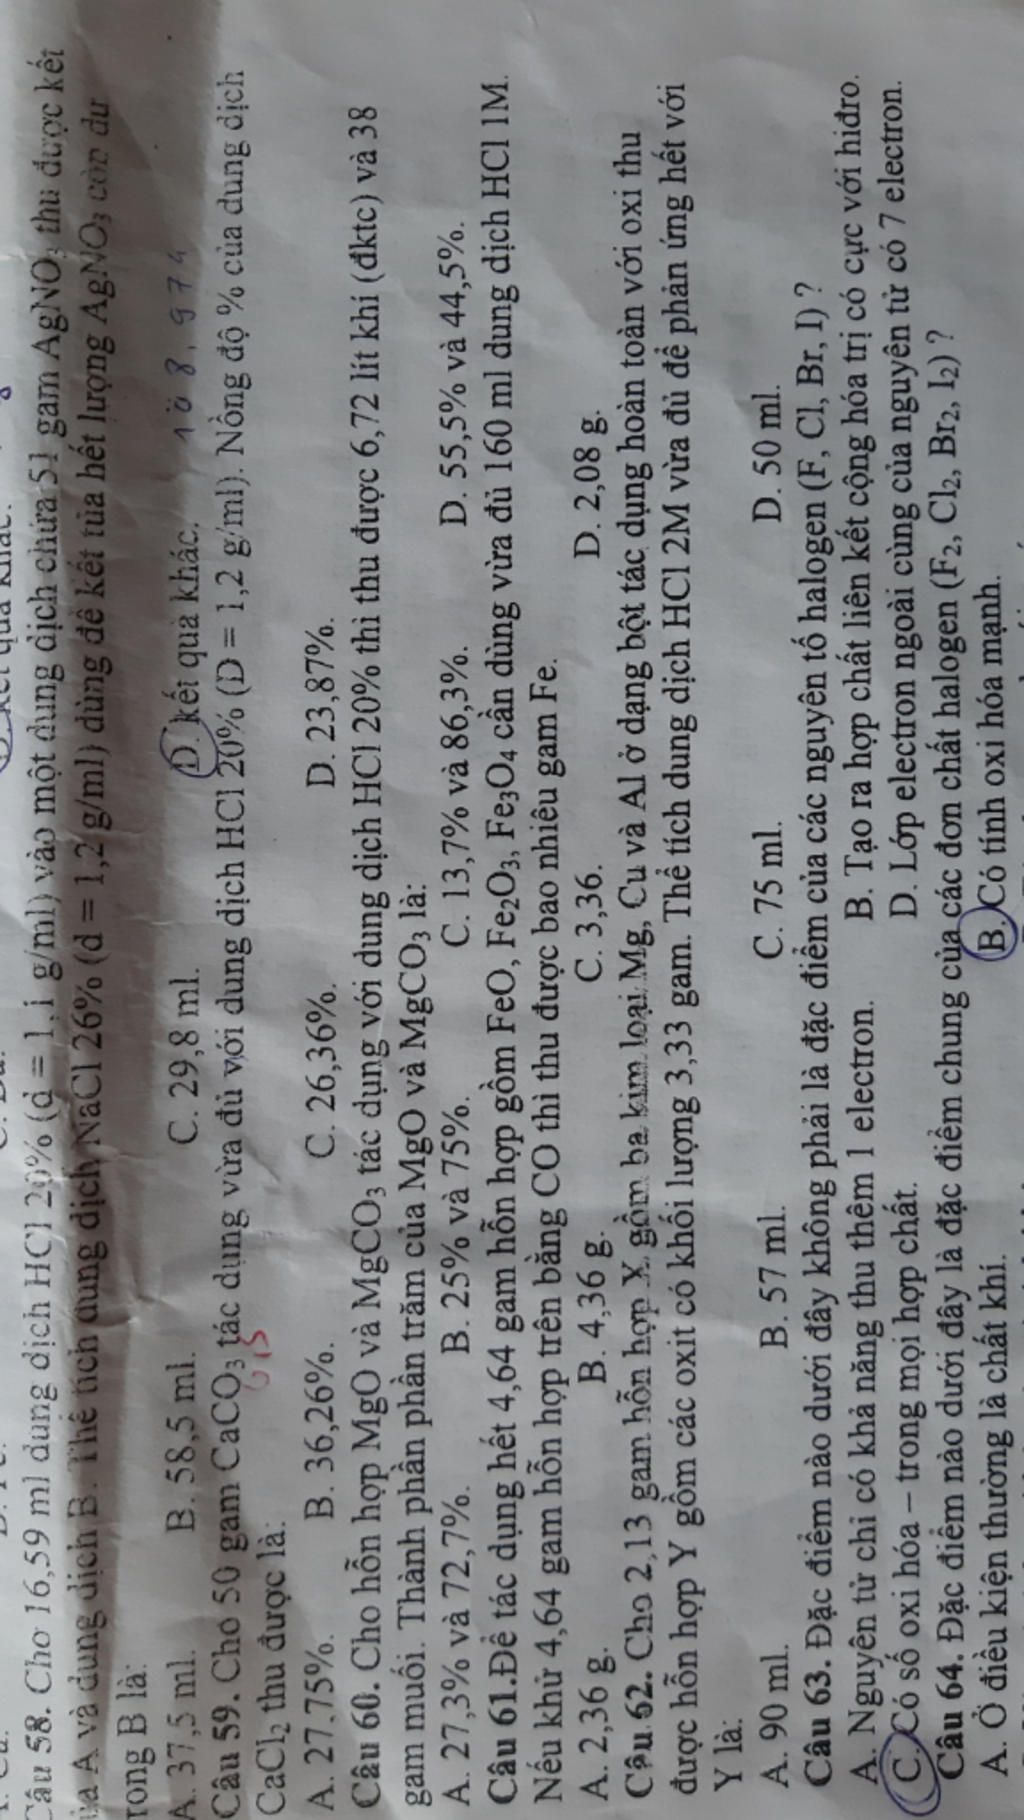 Câu 58. Cho 16,59 ml dung dịch HCl 20% (d = 1,1 g/ml) vào một dung dịch chứa 51 gam AgNO3 thu được kết
tủa A và dung dịch B. Thể tích dung dịch NaCl 26% (d = 1,2 g/ml) dùng để kết tủa hết lượng AgNO3 còn dư
trong B là:
A. 37,5 ml. B. 58,5 ml. C. 29,8 ml. D. kết quả khác. 108,974
Câu 59. Cho 50 gam CaCO3 tác dụng vừa đủ với dung dịch HCl 20% (D = 1,2 g/ml). Nồng độ % của dung dịch
CaCl2 thu được là:
A. 27,75%. B. 36,26%. C. 26,36%. D. 23,87%.
Câu 60. Cho hỗn hợp MgO và MgCO3 tác dụng với dung dịch HCl 20% thì thu được 6,72 lít khí (đktc) và 38
gam muối. Thành phần phần trăm của MgO và MgCO3 là:
A. 27,3% và 72,7%. B. 25% và 75%. C. 13,7% và 86,3%. D. 55,5% và 44,5%.
Câu 61.Để tác dụng hết 4,64 gam hỗn hợp gồm FeO, Fe2O3, Fe3O4 cần dùng vừa đủ 160 ml dung dịch HCl 1M.
Nếu khử 4,64 gam hỗn hợp trên bằng CO thì thu được bao nhiêu gam Fe.
A. 2,36 g. B. 4,36 g. C. 3,36. D. 2,08 g.
Câu 62. Cho 2,13 gam hỗn hợp X gồm ba kim loại Mg, Cu và Al ở dạng bột tác dụng hoàn toàn với oxi thu
được hỗn hợp Y gồm các oxit có khối lượng 3,33 gam. Thể tích dung dịch HCl 2M vừa đủ để phản ứng hết với
Y là:
A. 90 ml. B. 57 ml. C. 75 ml. D. 50 ml.
Câu 63. Đặc điểm nào dưới đây không phải là đặc điểm của các nguyên tố halogen (F, Cl, Br, I) ?
A. Nguyên tử chỉ có khả năng thu thêm 1 electron. B. Tạo ra hợp chất liên kết cộng hóa trị có cực với hiđro.
C. Có số oxi hóa – trong mọi hợp chất. D. Lớp electron ngoài cùng của nguyên tử có 7 electron.
Câu 64. Đặc điểm nào dưới đây là đặc điểm chung của các đơn chất halogen (F2, Cl2, Br2, I2) ?
A. Ở điều kiện thường là chất khí. B. Có tính oxi hóa mạnh.